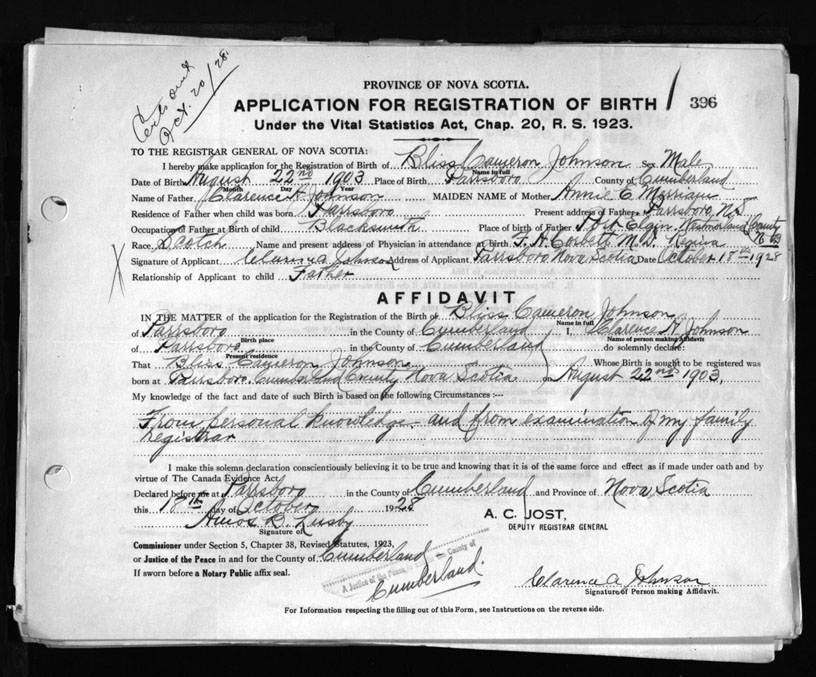 Certs out
Oct. 20/28.
PROVINCE OF NOVA SCOTIA.
APPLICATION FOR REGISTRATION OF BIRTH 396
Under the Vital Statistics Act, Chap. 20, R. S. 1923.
TO THE REGISTRAR GENERAL OF NOVA SCOTIA:
I hereby make application for the Registration of Birth of Bliss Cameron Johnson Sex Male
Name in full
Date of Birth August 22nd 1903 Place of Birth Parrsboro County of Cumberland
Month Day Year
Name of Father Clarence A Johnson MAIDEN NAME of Mother Annie E Merriam
Residence of Father when child was born Parrsboro Present address of Father Parrsboro, N.S
Occupation of Father at Birth of child Blacksmith Place of birth of Father Elgin, Westmorland County N B
Race Scotch Name and present address of Physician in attendance at birth M.D.
Signature of Applicant Clarence Johnson Address of Applicant Parrsboro Nova Scotia Date October 18th 1928
Relationship of Applicant to child Father
AFFIDAVIT
IN THE MATTER of the application for the Registration of the Birth of Bliss Cameron Johnson
Name in full
of Parrsboro in the County of Cumberland I, Clarence A Johnson
Birth place Name of person making Affidavit
of Parrsboro in the County of Cumberland do solemnly declare:
Present residence
That Bliss Cameron Johnson Whose Birth is sought to be registered was
born at Parrsboro Cumberland County Nova Scotia August 22nd 1903.
My knowledge of the fact and date of such Birth is based on the following Circumstances:--
From personal knowledge - and from examination of my family
registrar
I make this solemn declaration conscientiously believing it to be true and knowing that it is of the same force and effect as if made under oath and by
virtue of The Canada Evidence Act.
Declared before me at Parrsboro in the County of Cumberland and Province of Nova Scotia
this 18th day of October 1928
A. C. JOST,
DEPUTY REGISTRAR GENERAL
Amos R. Lusby
Signature of
Commissioner under Section 5, Chapter 38, Revised Statutes, 1923,
or Justice of the Peace in and for the County of Cumberland
A Justice of the Peace in and for the County of
Cumberland.
If sworn before a Notary Public affix seal.
Clarence A Johnson
Signature of Person making Affidavit.
For Information respecting the filling out of this Form, see Instructions on the reverse side.